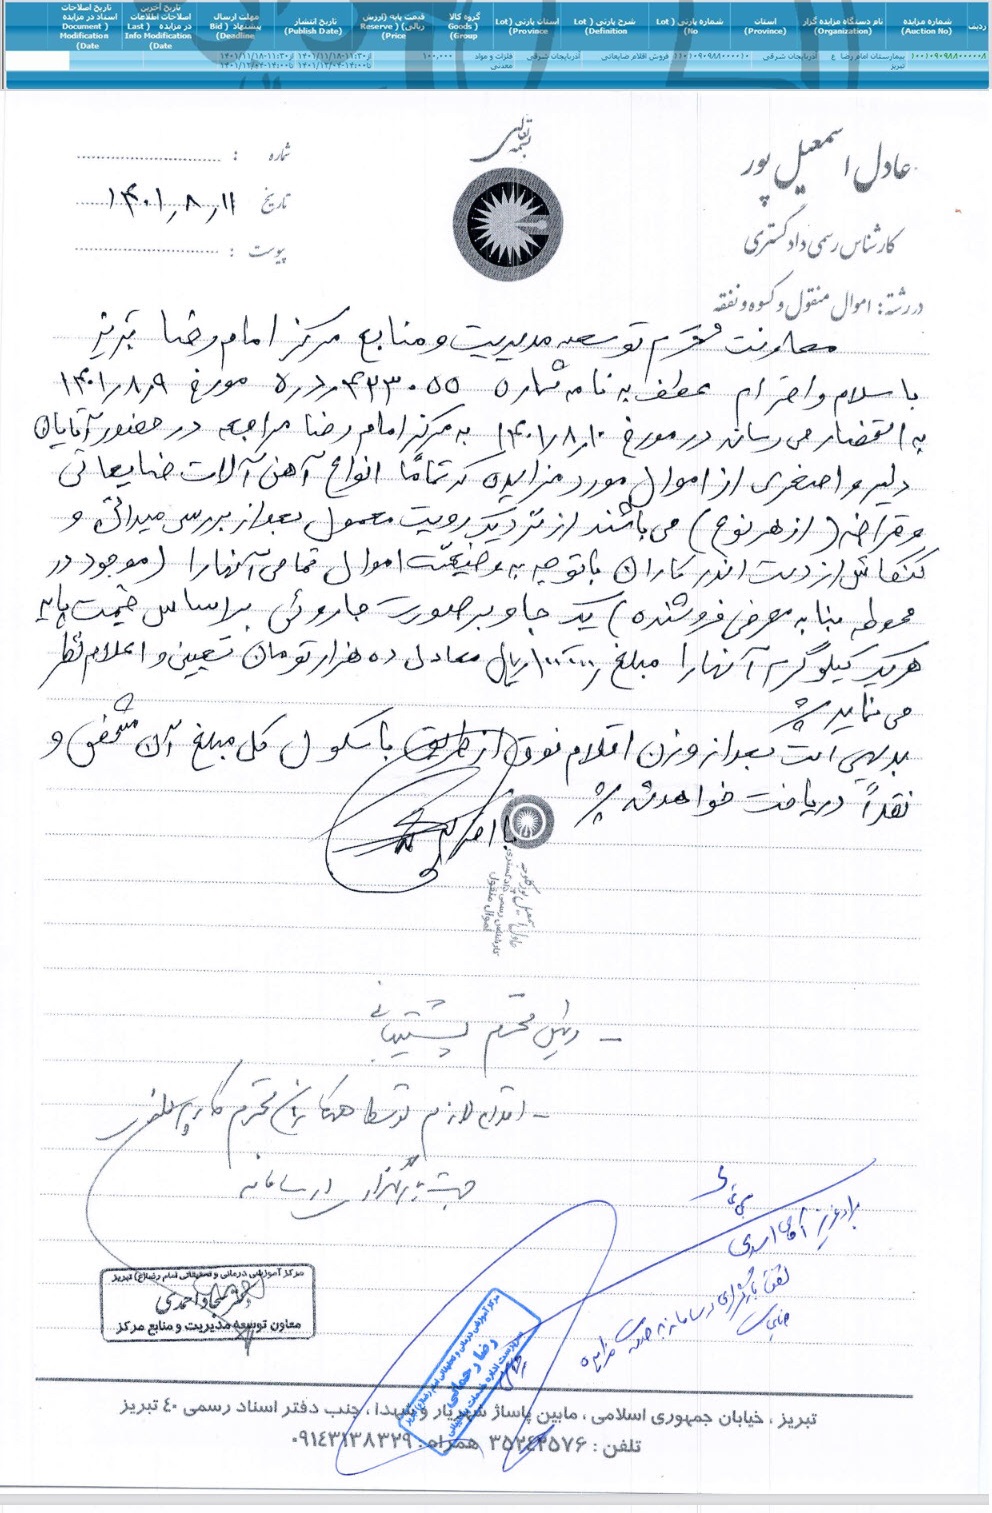 ردیف
شماره مزایده (Auction No)
نام دستگاه مزایده گزار (Organization)
استان (Province)
شماره پارتی (Lot No)
شرح پارتی (Lot Definition)
استان پارتی (Lot Province)
گروه کالا (Goods Group)
قیمت پایه (ارزش ریالی) (Reserve Price)
تاریخ انتشار (Publish Date)
مهلت ارسال پیشنهاد (Bid Deadline)
تاریخ آخرین اصلاحات اطلاعات در مزایده (Last Info Modification Date)
تاریخ اصلاحات اسناد در مزایده (Document Modification Date)
بیمارستان امام رضا ع تبریز
آذربایجان شرقی
فروش اقلام ضایعاتی
آذربایجان شرقی
فلزات و مواد معدنی
۱۰۰,۰۰۰
بسمه تعالی
عادل اسمعیل پور
کارشناس رسمی دادگستری
در رشته: اموال منقول و کسوه و نفقه
شماره :
تاریخ ۱۴۰۱٫۸٫۱۱
پیوست :
معاونت محترم توسعه مدیریت و منابع مرکز امام رضا تبریز
با سلام و احترام عطف به نامه شماره مورخ ۱۴۰۱٫۸٫۹
به استحضار می رساند در مورخ ۱۴۰۱٫۸٫۱۰ به مرکز امام رضا مراجعه در حضور آقایان
دلیر و اصغری از اموال مورد مزایده که تماماً انواع آهن آلات ضایعاتی
و قراضه (از هر نوع) می باشند از نزدیک رویت معمول بعد از بررسی میدانی و
کنکاش از دست اندر کاران با توجه به وضیعت اموال تمامی آنها را (موجود در
محوطه بنا به معرفی فروشنده) یک جا و بر صورت جاروئی بر اساس قیمت پایه
هر یک کیلوگرم آنها را مبلغ ۱۰۰٫۰۰۰ ریال معادل ده هزار تومان تعیین و اعلام نظر
می نماید
بدیهی است بعد از وزن اقلام فوق از طریق باسکول کل مبلغ آن مشخص و
نقداً دریافت خواهد شد
با احترام
عادل اسمعیل پور
کارشناس رسمی دادگستری
اموال منقول
- رئیس محترم پشتیبانی
- اقدام لازم توسط همکاران محترم کارپردازی
جهت بارگزاری در سامانه
برادر عزیز آقای اسدی
مرکز آموزشی درمانی و تحقیقاتی امام رضا(ع) تبریز
دکتر سجاد احمدی
معاون توسعه مدیریت و منابع مرکز
رضا رحمانی
تبریز ، خیابان جمهوری اسلامی ، مابین پاساژ شهریار و شیدا ، جنب دفتر اسناد رسمی ۴۰ تبریز
تلفن : ۳۵۲۴۲۵۷۶ همراه : ۰۹۱۴۳۱۳۸۳۲۹